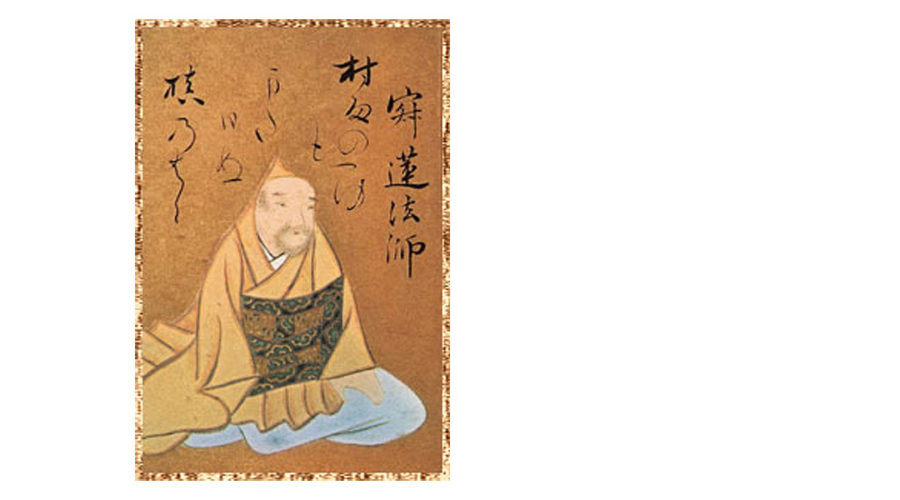 寂蓮法師
村雨のつゆ
も
また
ひぬ
槙乃はに